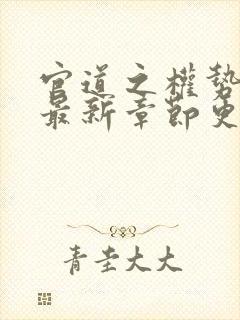 官道之權勢
最新章節更
青圭大大